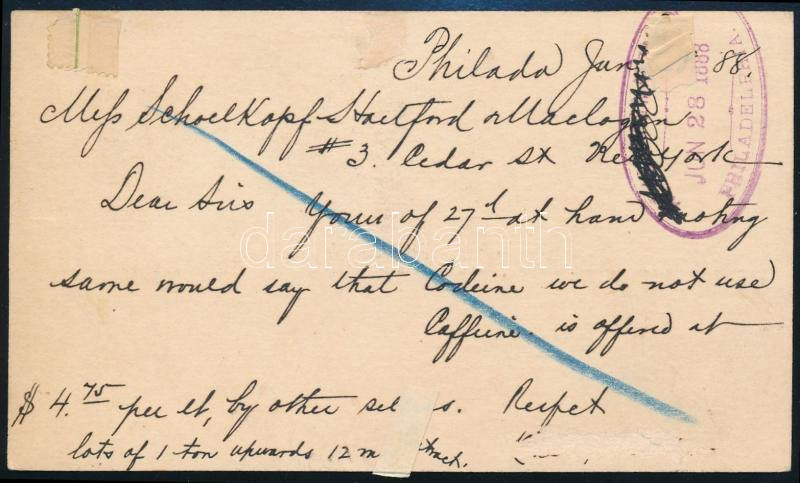 Philada Jun 88.
Mess Schoelkopf Hartford & Maclagan
#3. Cedar St New York
Dear Sirs Yours of 27th at hand noting
same would say that Codeine we do not use
Caffeine. is offered at
$4.75 per lb, by other sellers. Respct
lots of 1 ton upwards 12 m tract.
JUN 28 1888
PHILADELPHIA.
darabanth